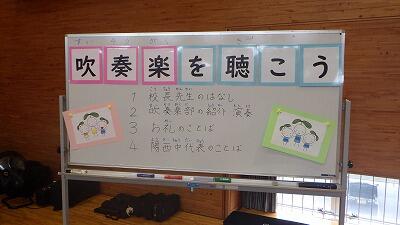 吹奏楽を聴こう
1 校長先生のはなし
2 吹奏楽部の紹介 演奏
3 お礼のことば
4 陽西中代表のことば